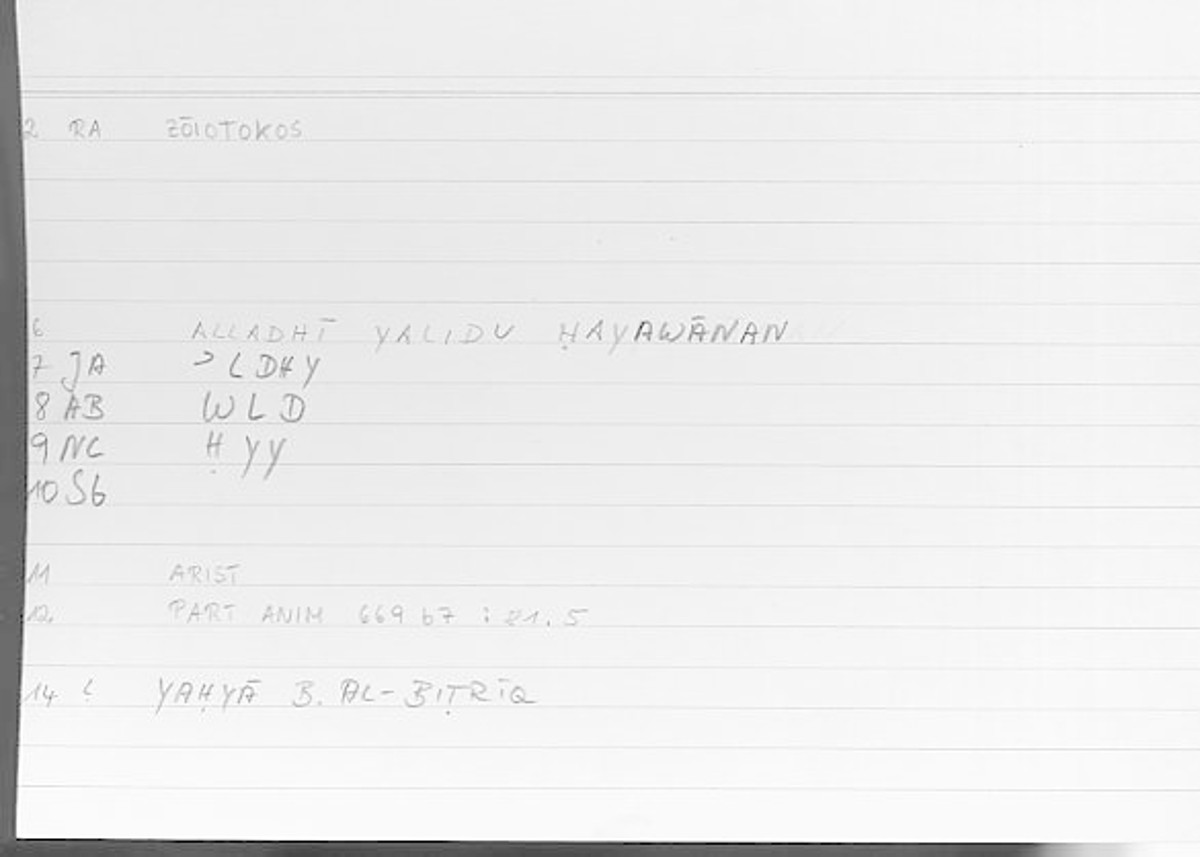 2 RA ZŌIOTOKOS
6 ALLADHĪ YALIDU ḤAYAWĀNAN
7 JA >LDHY
8 AB WLD
9 NC ḤYY
10 Sb
11 ARIST
12 PART ANIM 669 b7 : 81.5
14 YAḤYĀ B. AL-BIṬRĪQ